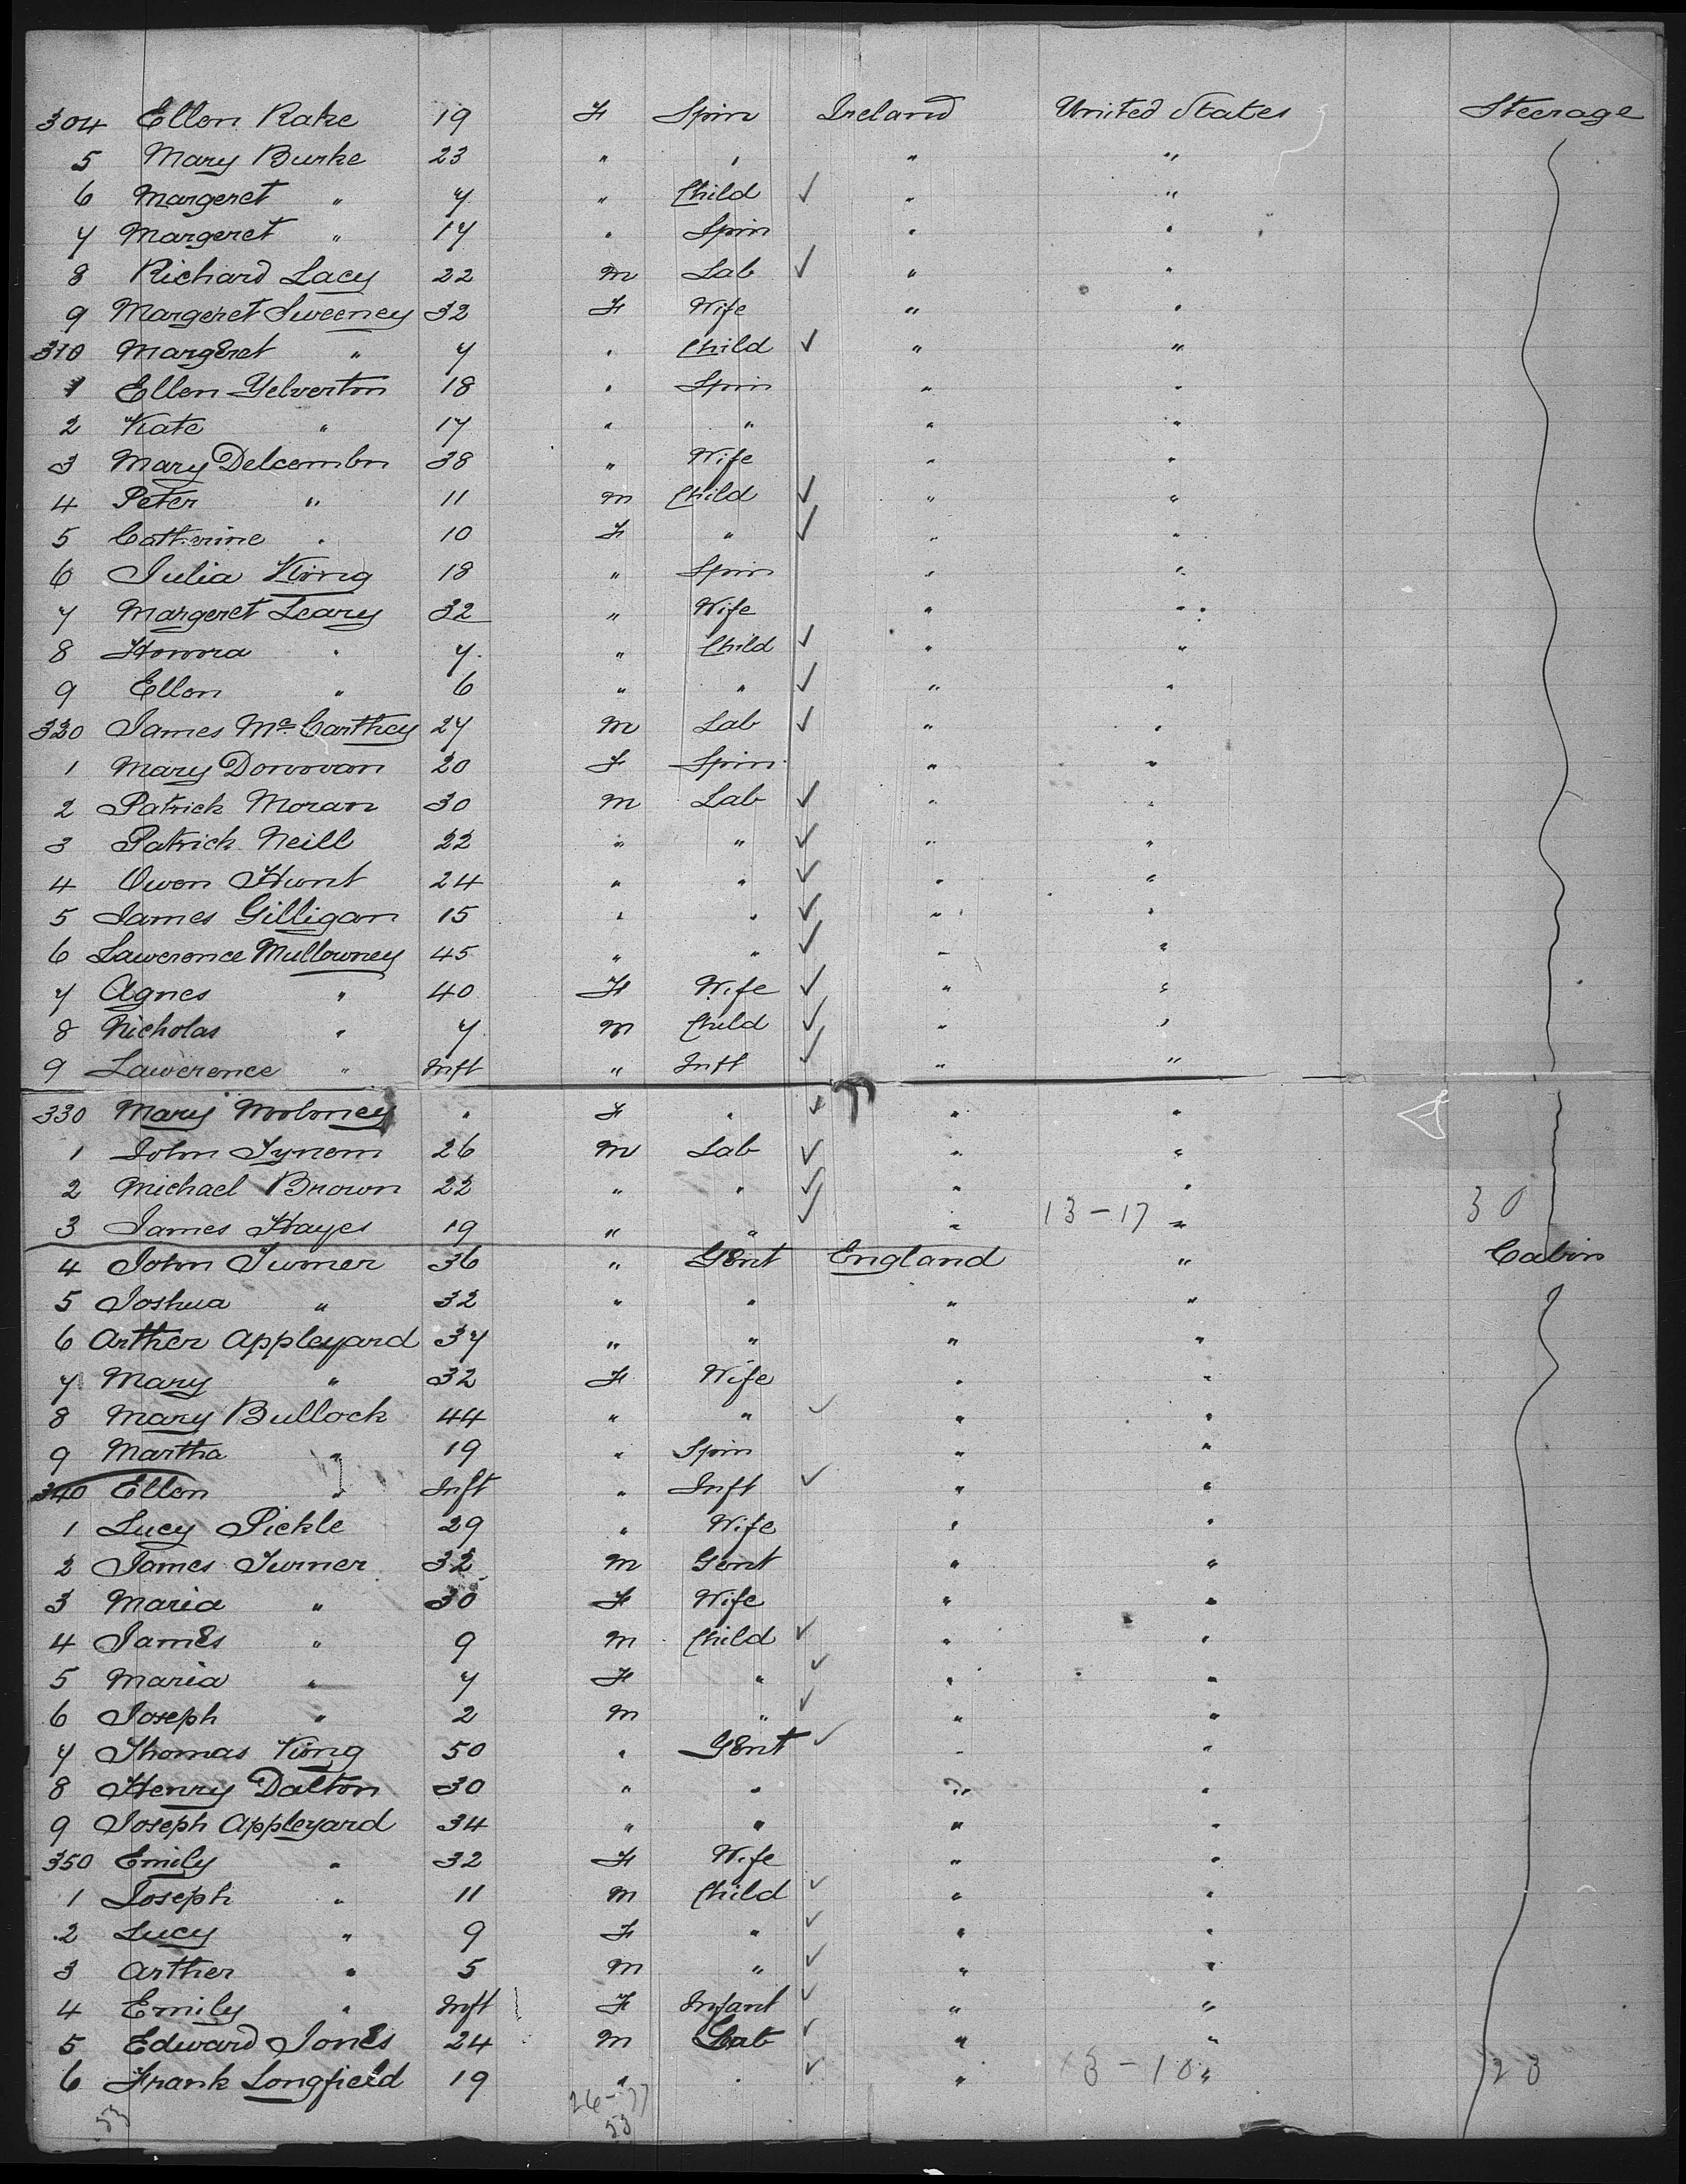 304 Ellen Rake 19 F Spin Ireland United States Steerage
5 Mary Burke 23 " " " "
6 Margeret " 7 " Child ✓ " "
7 Margeret " 17 " Spin " "
8 Richard Lacy 22 M Lab ✓ " "
9 Margeret Sweeney 32 F Wife " "
310 Margeret " 7 " Child ✓ " "
1 Ellen Yelverton 18 " Spin " "
2 Kate " 17 " " " "
3 Mary Delcombn 38 " Wife " "
4 Peter " 11 M Child ✓ " "
5 Catherine " 10 F " ✓ " "
6 Julia King 18 " Spin " "
7 Margeret Leary 32 " Wife " "
8 Honora " 7 " Child ✓ " "
9 Ellen " 6 " " ✓ " "
320 James McCarthey 27 M Lab ✓ " "
1 Mary Donovan 20 F Spin " "
2 Patrick Moran 30 M Lab ✓ " "
3 Patrick Neill 22 " " ✓ " "
4 Owen Hunt 24 " " ✓ " "
5 James Gilligan 15 " " ✓ " "
6 Lawerence Mullowney 45 " " ✓ " "
7 Agnes " 40 F Wife ✓ " "
8 Nicholas " 7 M Child ✓ " "
9 Lawerence " Inft " Inft ✓ " "
330 Mary Moloney " F " ✓ " "
1 John Tynem 26 M Lab ✓ " "
2 Michael Brown 22 " " ✓ " "
3 James Hayes 19 " " ✓ " 13-17 " 30
4 John Turner 36 " Gent England " Cabin
5 Joshua " 32 " " " "
6 Arther Appleyard 37 " " " "
7 Mary " 32 F Wife " "
8 Mary Bullock 44 " " ✓ " "
9 Martha " 19 " Spin " "
340 Ellen " Inft " Inft ✓ " "
1 Lucy Pickle 29 " Wife " "
2 James Turner 32 M Gent " "
3 Maria " 30 F Wife " "
4 James " 9 M Child ✓ " "
5 Maria " 7 F " ✓ " "
6 Joseph " 2 M " ✓ " "
7 Thomas King 50 " Gent ✓ " "
8 Henry Dalton 30 " " " "
9 Joseph Appleyard 34 " " " "
350 Emily " 32 F Wife " "
1 Joseph " 11 M Child ✓ " "
2 Lucy " 9 F " ✓ " "
3 Arther " 5 M " ✓ " "
4 Emily " Inft F Infant ✓ " "
5 Edward Jones 24 M Lab ✓ " "
6 Frank Longfield 19 " " ✓ " 13-10 " 23
53 26-27
53